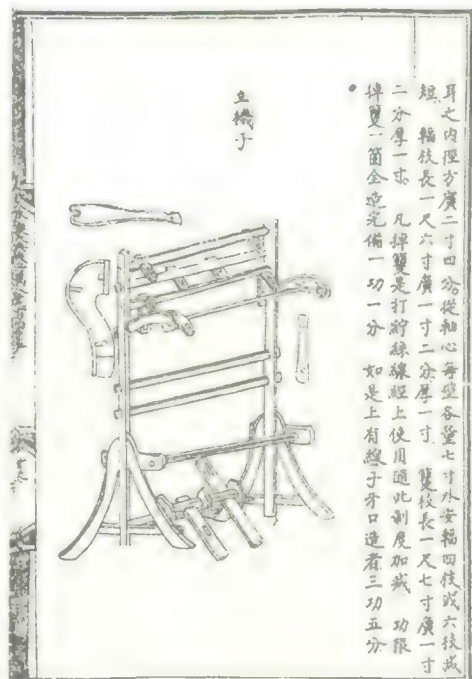 耳之内徑方廣二寸四分從軸心每壁各量七寸外安輻四枝或六枝或
短 輻枝長一尺六寸廣一寸二分厚一寸 䉶枝長一尺七寸廣一寸
二分厚一寸 凡掉䉶是打紵絲線經上使用隨此制度加減 功限
掉䉶一箇全造完備一功一分 如是上有線子牙口造者三功五分
立機子